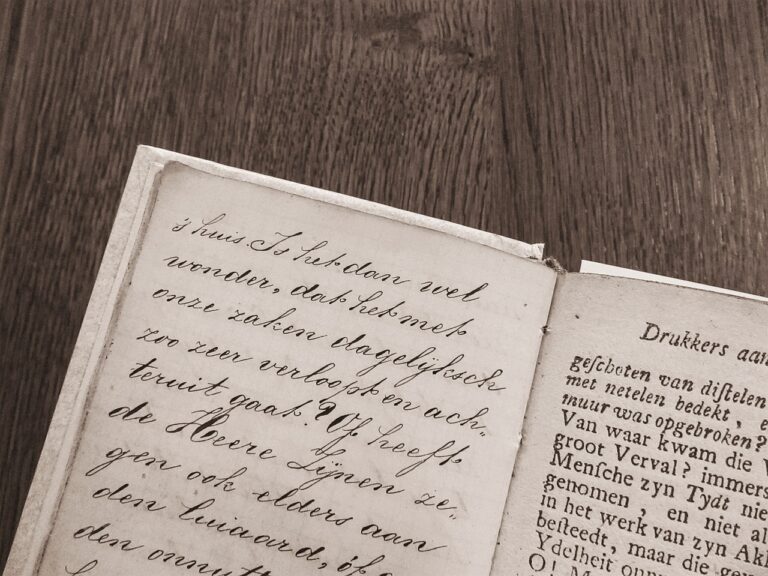 's huis. Is het dan wel
wonder, dat het met
onze zaken dagelijksch
zoo zeer verloopt en ach„
teruit gaat? Of heeft
de Heere Zijnen ze„
gen ook elders aan
den luiaard, óf a
den onnutt
Drukkers aan
geschoten van distelen
met netelen bedekt, e
muur was opgebroken?
Van waar kwam die V
groot Verval? immers
Mensche zyn Tydt nie
genomen, en niet al
in het werk van zyn Ak
besteedt, maar die gew
Ydelheit onnu
O! M